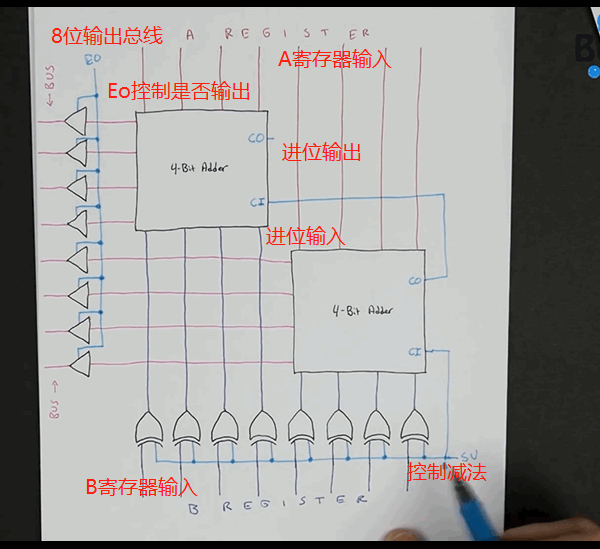 8位输出总线
A REGISTER
EO
A寄存器输入
← BUS
Eo控制是否输出
CO
进位输出
4-Bit Adder
CI
进位输入
CO
4-Bit Adder
CI
BUS →
SU
控制减法
B寄存器输入
B REGISTER